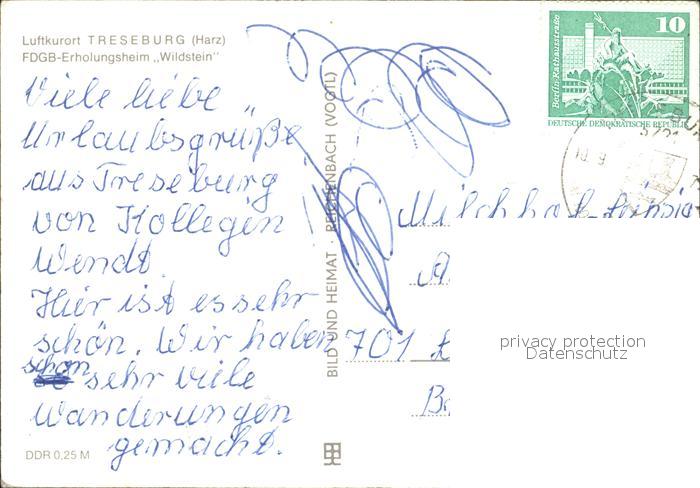 Luftkurort TRESEBURG (Harz)
FDGB-Erholungsheim „Wildstein"
Viele liebe
Urlaubsgrüße
aus Treseburg
von Kollegin
Wendt.
Hier ist es sehr
schön. Wir haben
schon sehr viele
Wanderungen
gemacht.
DDR 0,25 M
BILD UND HEIMAT · REICHENBACH (VOGTL)
10
Berlin, Rathausstraße
DEUTSCHE DEMOKRATISCHE REPUBLIK
701
privacy protection
Datenschutz